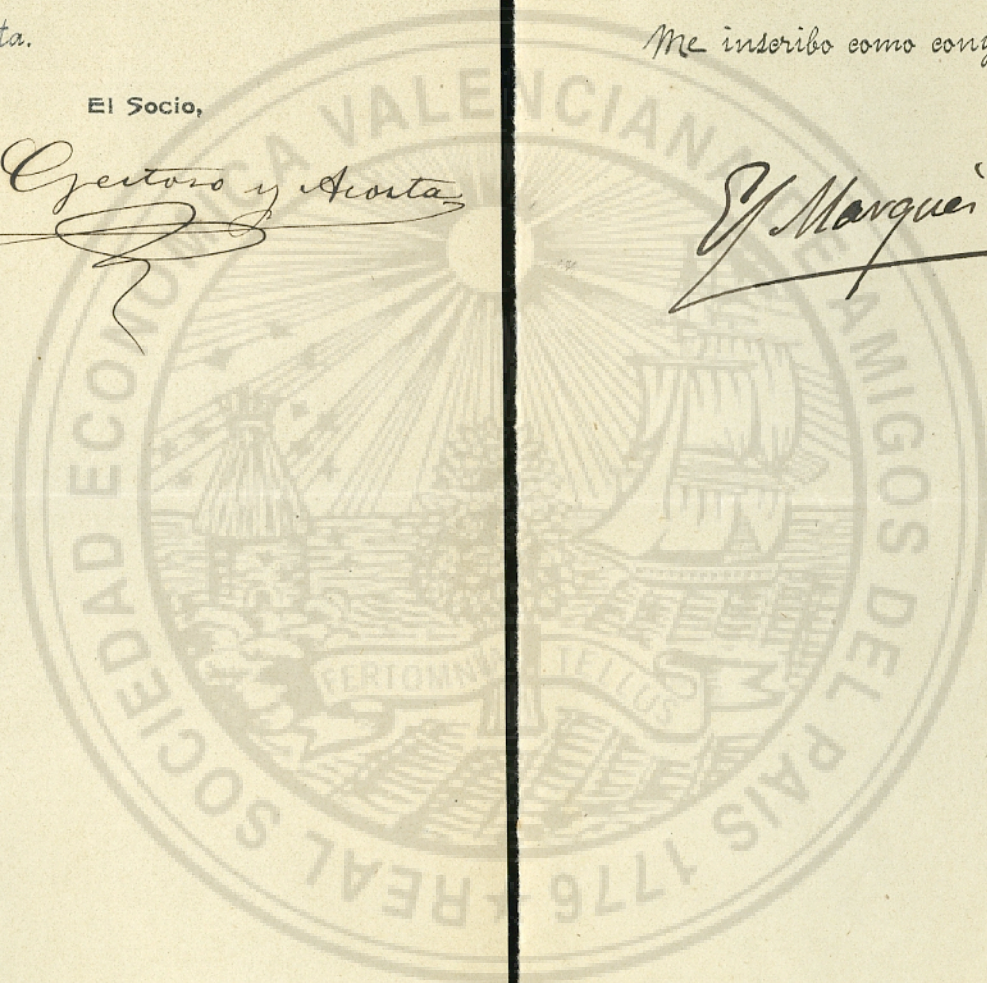 ta.
El Socio,
Gestoso y Acosta
Me inscribo como cong
El Marqués
REAL SOCIEDAD ECONOMICA VALENCIANA DE AMIGOS DEL PAIS 1776
FERT OMNIA TELLUS